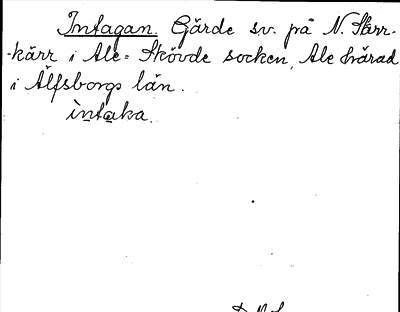 Intagan. Gärde sv. på N. Starr-
-kärr i Ale-Skövde socken, Ale härad
i Älfsborgs län.
ìntàka.